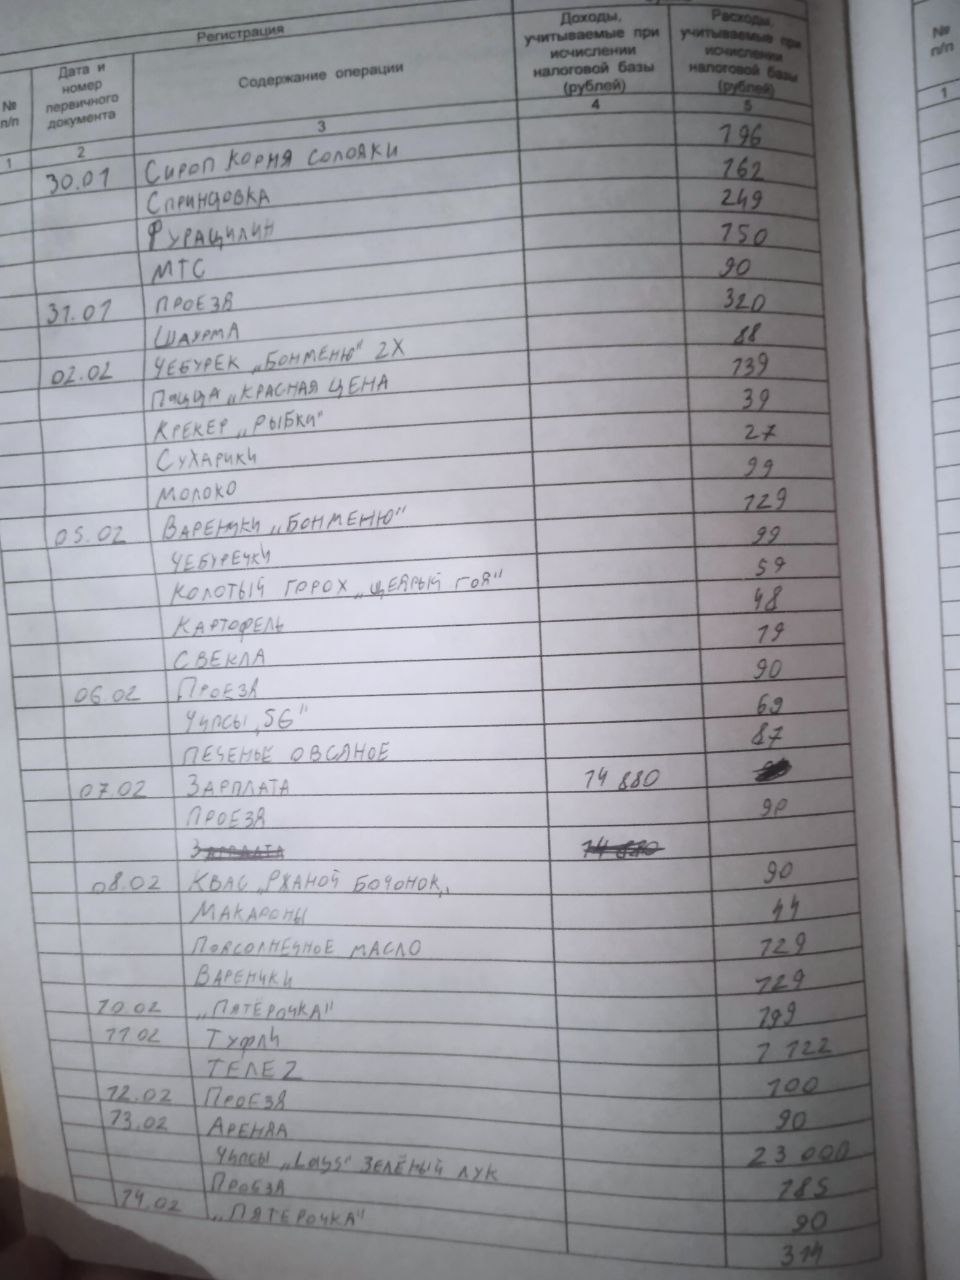 Регистрация
№ п/п
Дата и номер первичного документа
Содержание операции
Доходы, учитываемые при исчислении налоговой базы (рублей)
Расходы, учитываемые при исчислении налоговой базы (рублей)
1 2 3 4 5
30.01 СИРОП КОРНЯ СОЛОДКИ 196
СПРИНЦОВКА 162
ФУРАЦИЛИН 249
МТС 150
31.01 ПРОЕЗД 90
ШАУРМА 320
02.02 ЧЕБУРЕК „БОНМЕНЮ" 2X 88
ПИЦЦА „КРАСНАЯ ЦЕНА 139
КРЕКЕР „РЫБКИ" 39
СУХАРИКИ 27
МОЛОКО 99
05.02 ВАРЕНИКИ „БОНМЕНЮ" 129
ЧЕБУРЕЧКИ 99
КОЛОТЫЙ ГОРОХ „ЩЕДРЫЙ ГОД" 59
КАРТОФЕЛЬ 48
СВЕКЛА 19
06.02 ПРОЕЗД 90
ЧИПСЫ „5G" 69
ПЕЧЕНЬЕ ОВСЯНОЕ 87
07.02 ЗАРПЛАТА 14 880
ПРОЕЗД 90
ЗАРПЛАТА 14 880
08.02 КВАС „РЖАНОЙ БОЧОНОК„ 90
МАКАРОНЫ 44
ПОДСОЛНЕЧНОЕ МАСЛО 129
ВАРЕНИКИ 129
10.02 „ПЯТЁРОЧКА" 199
11.02 ТУФЛИ 1 122
ТЕЛЕ 2 100
12.02 ПРОЕЗД 90
13.02 АРЕНДА 23 000
ЧИПСЫ „Lays" ЗЕЛЁНЫЙ ЛУК 185
ПРОЕЗД 90
14.02 „ПЯТЕРОЧКА" 314
№ п/п
1